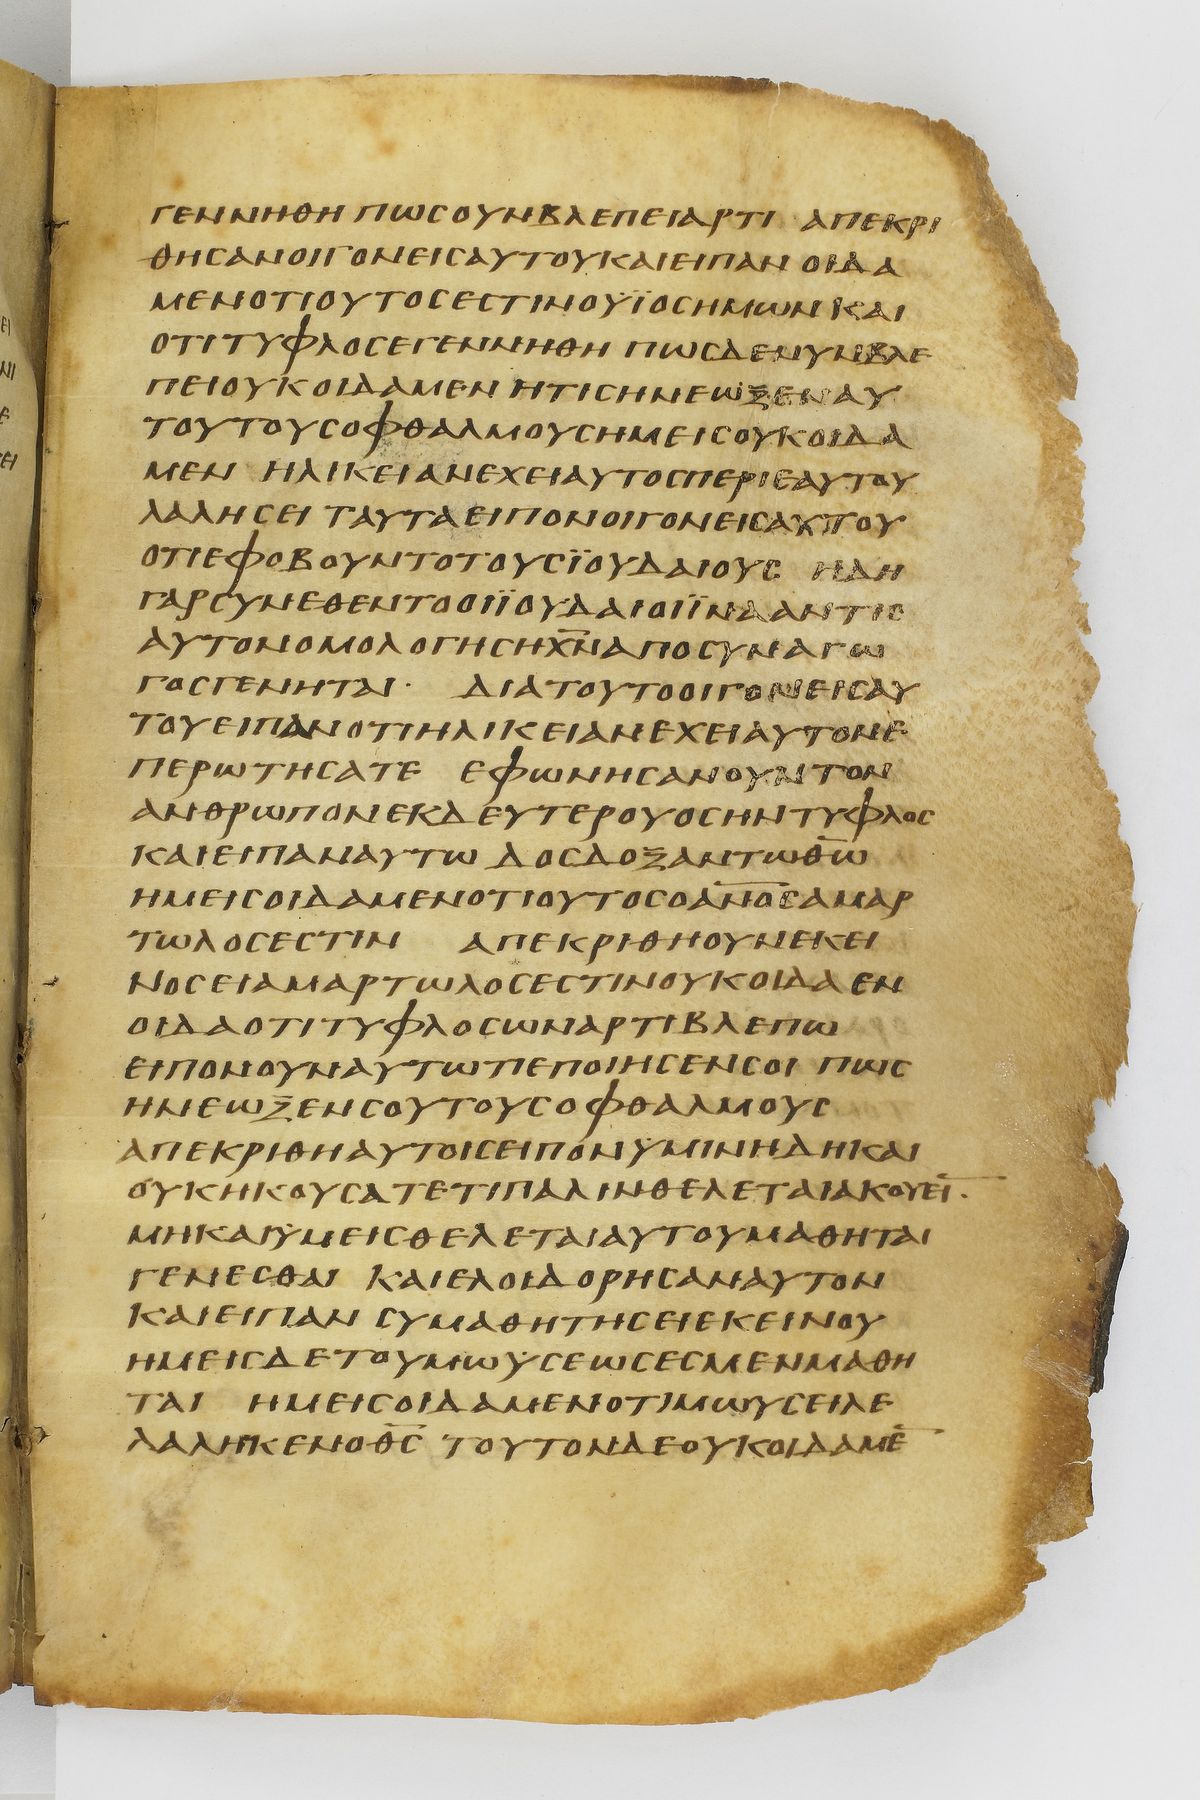 ΓΕΝΝΗΘΗ ΠΩΣΟΥΝΒΛΕΠΕΙΑΡΤΙ ΑΠΕΚΡΙ
ΘΗΣΑΝΟΙΓΟΝΕΙΣΑΥΤΟΥΚΑΙΕΙΠΑΝ ΟΙΔΑ
ΜΕΝΟΤΙΟΥΤΟΣΕΣΤΙΝΟΫΪΟΣΗΜΩΝ ΚΑΙ
ΟΤΙΤΥΦΛΟΣΕΓΕΝΝΗΘΗ ΠΩΣΔΕΝΥΝΒΛΕ
ΠΕΙΟΥΚΟΙΔΑΜΕΝ ΗΤΙΣΗΝΕΩΞΕΝΑΥ
ΤΟΥΤΟΥΣΟΦΘΑΛΜΟΥΣΗΜΕΙΣΟΥΚΟΙΔΑ
ΜΕΝ ΗΛΙΚΕΙΑΝΕΧΕΙΑΥΤΟΣΠΕΡΙΕΑΥΤΟΥ
ΛΑΛΗΣΕΙ ΤΑΥΤΑΕΙΠΟΝΟΙΓΟΝΕΙΣΑΥΤΟΥ
ΟΤΙΕΦΟΒΟΥΝΤΟΤΟΥΣΪΟΥΔΑΙΟΥΣ ΗΔΗ
ΓΑΡΣΥΝΕΘΕΝΤΟΟΙΪΟΥΔΑΙΟΙΪΝΑΑΝΤΙΣ
ΑΥΤΟΝΟΜΟΛΟΓΗΣΗΧ̅Ν̅ΑΠΟΣΥΝΑΓΩ
ΓΟΣΓΕΝΗΤΑΙ· ΔΙΑΤΟΥΤΟΟΙΓΟΝΕΙΣΑΥ
ΤΟΥΕΙΠΑΝΟΤΙΗΛΙΚΕΙΑΝΕΧΕΙΑΥΤΟΝΕ
ΠΕΡΩΤΗΣΑΤΕ ΕΦΩΝΗΣΑΝΟΥΝΤΟΝ
ΑΝΘΡΩΠΟΝΕΚΔΕΥΤΕΡΟΥΟΣΗΝΤΥΦΛΟΣ
ΚΑΙΕΙΠΑΝΑΥΤΩ ΔΟΣΔΟΞΑΝΤΩΘ̅Ω̅
ΗΜΕΙΣΟΙΔΑΜΕΝΟΤΙΟΥΤΟΣΟΑ̅Ν̅Ο̅Σ̅ΑΜΑΡ
ΤΩΛΟΣΕΣΤΙΝ ΑΠΕΚΡΙΘΗΟΥΝΕΚΕΙ
ΝΟΣΕΙΑΜΑΡΤΩΛΟΣΕΣΤΙΝΟΥΚΟΙΔΑΕΝ
ΟΙΔΑΟΤΙΤΥΦΛΟΣΩΝΑΡΤΙΒΛΕΠΩ
ΕΙΠΟΝΟΥΝΑΥΤΩΤΙΕΠΟΙΗΣΕΝΣΟΙ ΠΩΣ
ΗΝΕΩΞΕΝΣΟΥΤΟΥΣΟΦΘΑΛΜΟΥΣ
ΑΠΕΚΡΙΘΗΑΥΤΟΙΣΕΙΠΟΝΫΜΙΝΗΔΗΚΑΙ
ΟΥΚΗΚΟΥΣΑΤΕΤΙΠΑΛΙΝΘΕΛΕΤΑΙΑΚΟΥΕΙ̅·
ΜΗΚΑΙΫΜΕΙΣΘΕΛΕΤΑΙΑΥΤΟΥΜΑΘΗΤΑΙ
ΓΕΝΕΣΘΑΙ ΚΑΙΕΛΟΙΔΟΡΗΣΑΝΑΥΤΟΝ
ΚΑΙΕΙΠΑΝ ΣΥΜΑΘΗΤΗΣΕΙΕΚΕΙΝΟΥ
ΗΜΕΙΣΔΕΤΟΥΜΩΫΣΕΩΣΕΣΜΕΝΜΑΘΗ
ΤΑΙ ΗΜΕΙΣΟΙΔΑΜΕΝΟΤΙΜΩΥΣΕΙΛΕ
ΛΑΛΗΚΕΝΟΘ̅Σ̅ ΤΟΥΤΟΝΔΕΟΥΚΟΙΔΑΜΕ̅